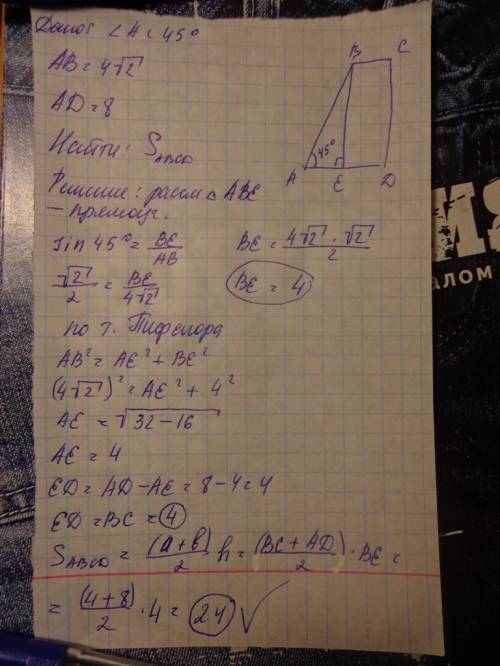 Дано: ∠A = 45°
AB = 4√2
AD = 8
Найти: S ABCD
Решение: рассм △ ABE
– прямоуг.
sin 45° = BE/AB
√2/2 = BE/4√2
BE = 4√2 · √2/2
BE = 4
по т. Пифагора
AB² = AE² + BE²
(4√2)² = AE² + 4²
AE = √32 – 16
AE = 4
ED = AD – AE = 8 – 4 = 4
ED = BC = 4
S ABCD = (a + b)/2 · h = (BC + AD)/2 · BE =
= (4 + 8)/2 · 4 = 24 ✓
B C
45°
A E D
АЛОМ